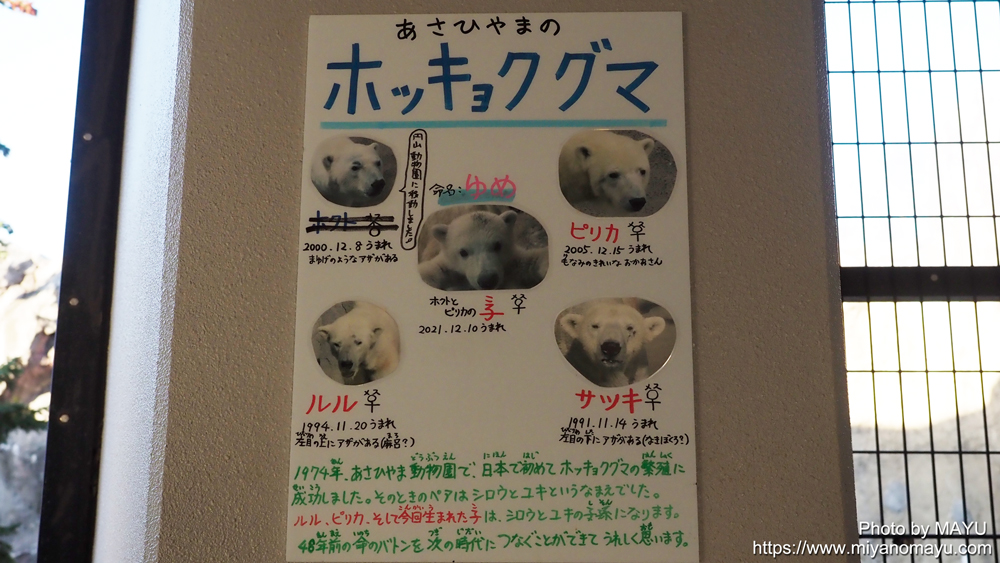 あさひやまの
ホッキョクグマ
円山動物園に移動しました!!
ホクト
2000.12.8 うまれ
まゆげのようなアザがある
命名:ゆめ
ホクトと
ピリカの子
2021.12.10 うまれ
ピリカ
2005.12.15 うまれ
毛なみのきれいなおかおさん
ルル
1994.11.20 うまれ
左目の上にアザがある(麻呂?)
サツキ
1991.11.14 うまれ
左目の下にアザがある(なきぼくろ?)
1974年、あさひやま動物園で、日本で初めてホッキョクグマの繁殖に
成功しました。そのときのペアはシロウとユキというなまえでした。
ルル、ピリカ、そして今回生まれた子は、シロウとユキの子孫になります。
48年前の命のバトンを次の時代につなぐことができてうれしく思います。
Photo by MAYU
https://www.miyanomayu.com